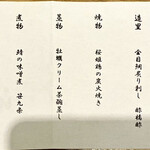 造里
金目鯛炙り刺し 酢橘酢
焼物
桜姫鶏の炭火焼き
蒸物
牡蠣クリーム茶碗蒸し
煮物
鯖の味噌煮 笹九条